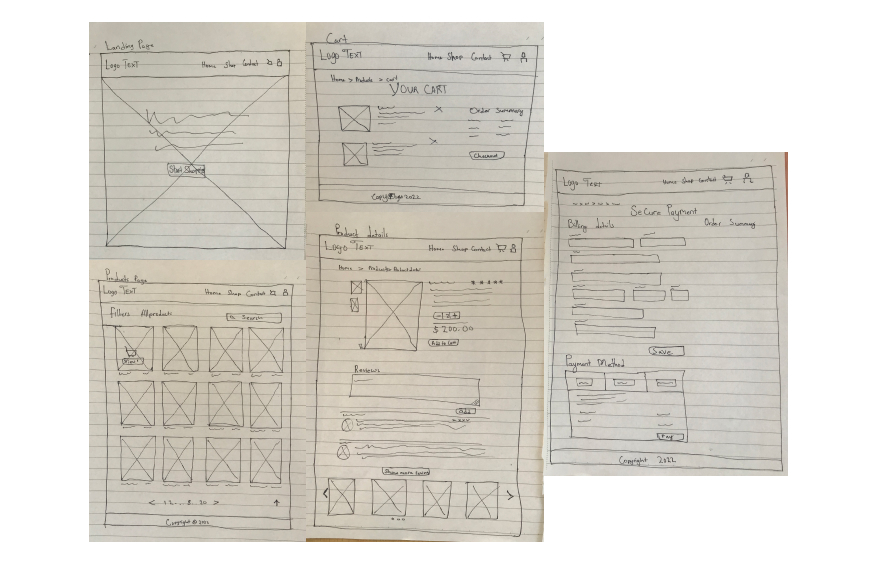 Landing Page
Logo TEXT Home Shop Contact
Start Shopping
Products Page
Logo TEXT Home Shop Contact
Filters All products Search
View
< 1 2 ... 8 .. 20 >
Copyright © 2022
Cart
Logo TEXT Home Shop Contact
Home > Products > Cart
YOUR CART
Order Summary
Checkout
2022
Product details
Logo TEXT Home Shop Contact
Home >
- 2 +
$200.00
Add to Cart
Reviews
Add
Show more
< >
Logo TEXT Home Shop Contact
Secure Payment
Billing details Order Summary
Save
Payment Method
Pay
Copyright 2022